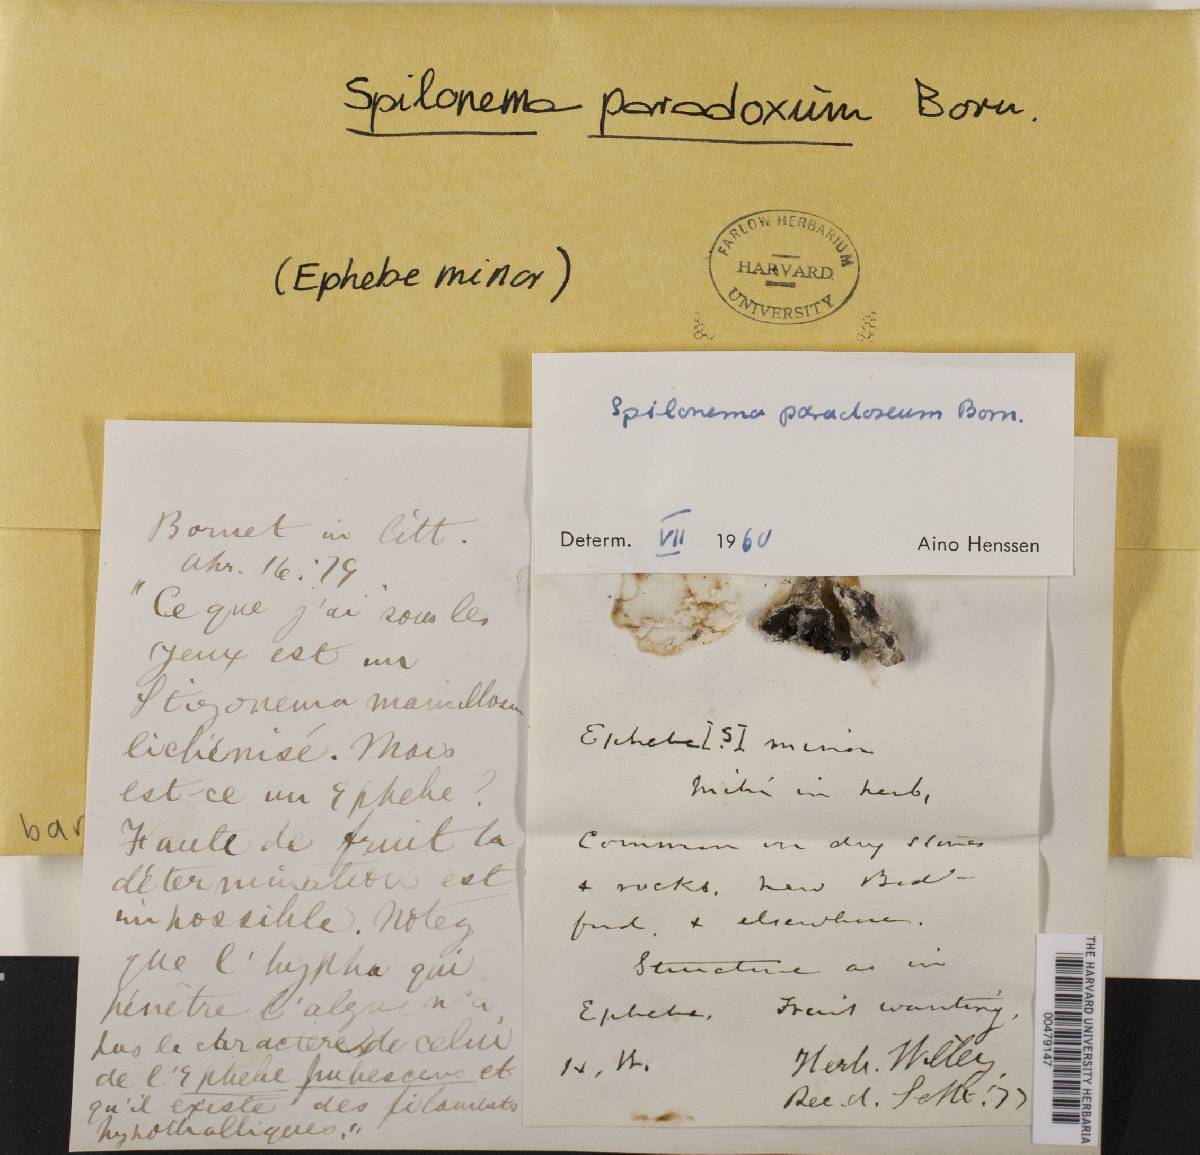 Spilonema paradoxum Born.
(Ephebe minor)
FARLOW HERBARIUM
HARVARD
UNIVERSITY
Spilonema paradoxum Born.
Determ. VII 1960 Aino Henssen
Bornet in litt.
Apr. 16. '79
"Ce que j'ai sous les
yeux est un
Stigonema mamillosum
lichénisé. Mais
est-ce un Ephebe?
Faute de fruit la
détermination est
impossible. Notez
que l'hypha qui
pénètre l'algue n'a
pas le caractère de celui
de l'Ephebe pubescens et
qu'il existe des filaments
hypothalliques."
Ephebe [S] minor
in herb.
Common on dry stones
& rocks. New Bed-
ford, & elsewhere.
Structure as in
Ephebe. Fruit wanting.
H. W.
Herb. Willey
Rec.d. '77
bar
THE HARVARD UNIVERSITY HERBARIA
00479147